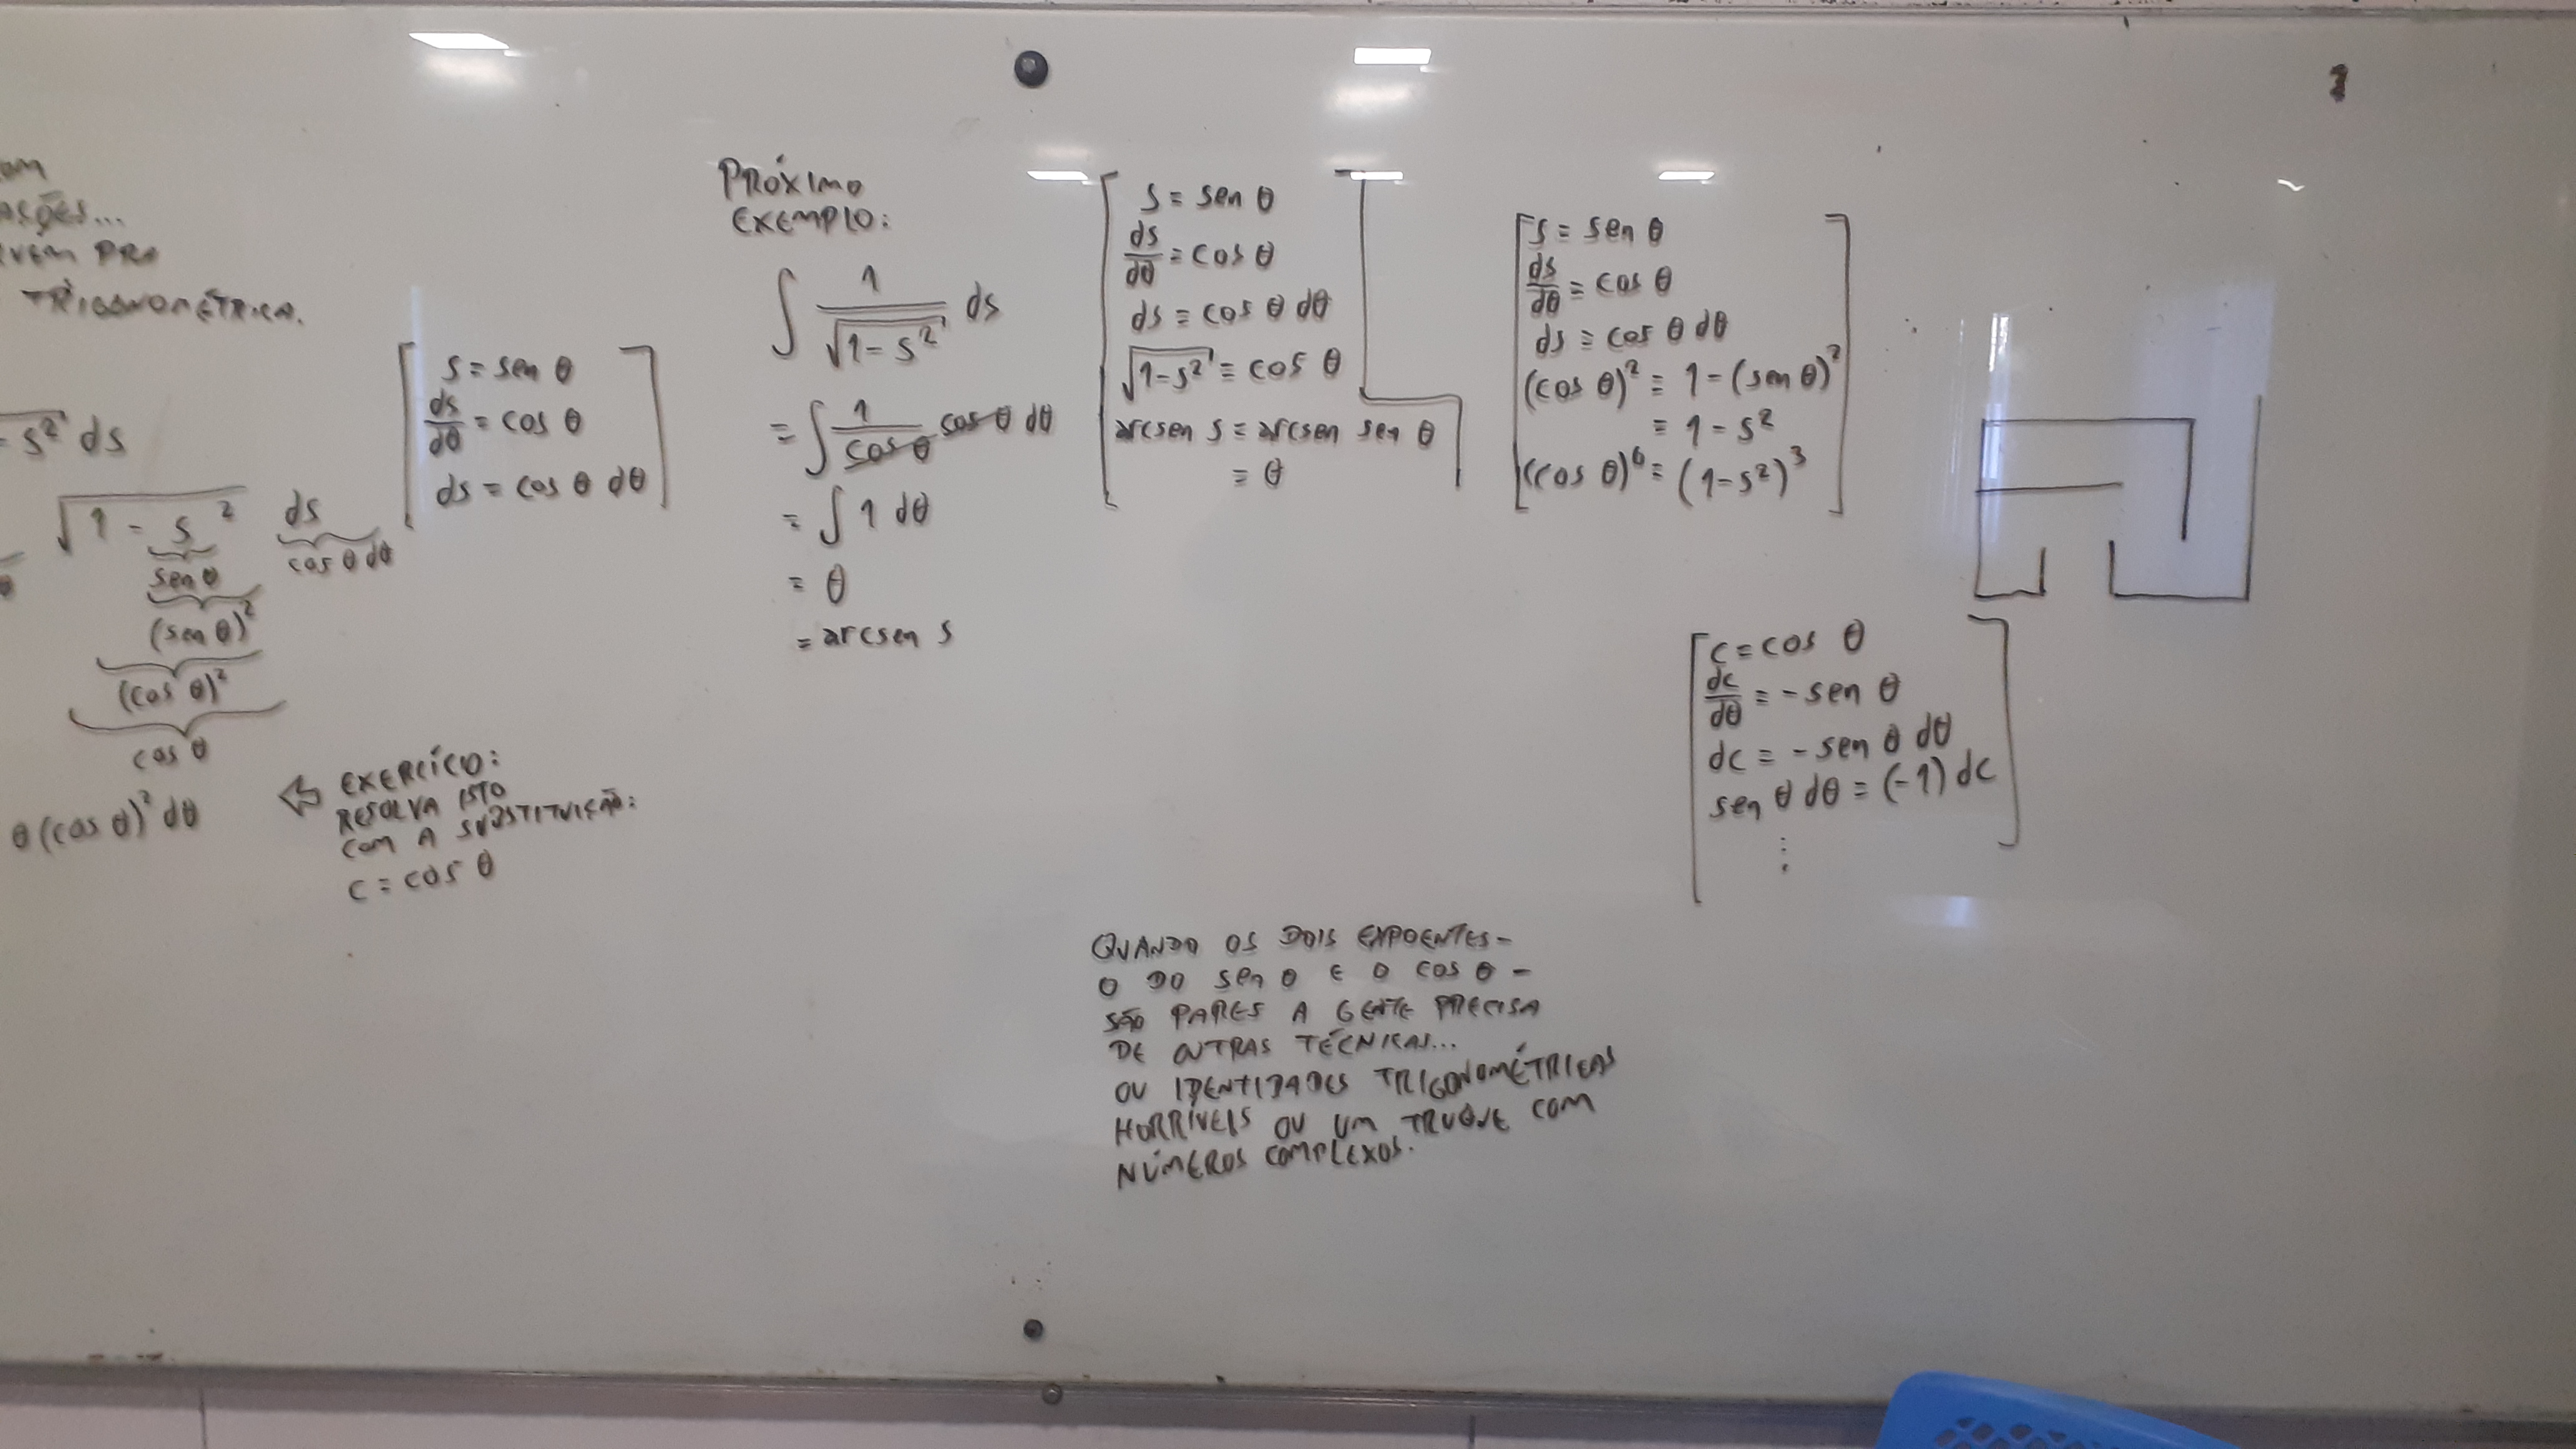 TRIGONOMÉTRICA.
s² ds
√1 - s² ds
sen θ cos θ dθ
(sen θ)²
(cos θ)²
cos θ
θ (cos θ)² dθ
s = sen θ
ds/dθ = cos θ
ds = cos θ dθ
⇐ EXERCÍCIO:
RESOLVA ISTO
COM A SUBSTITUIÇÃO:
c = cos θ
PRÓXIMO
EXEMPLO:
∫ 1/√1-s² ds
= ∫ 1/cos θ cos θ dθ
= ∫ 1 dθ
= θ
= arcsen s
s = sen θ
ds/dθ = cos θ
ds = cos θ dθ
√1-s² = cos θ
arcsen s = arcsen sen θ
= θ
s = sen θ
ds/dθ = cos θ
ds = cos θ dθ
(cos θ)² = 1 - (sen θ)²
= 1 - s²
(cos θ)⁶ = (1-s²)³
c = cos θ
dc/dθ = - sen θ
dc = - sen θ dθ
sen θ dθ = (-1) dc
⋮
QUANDO OS DOIS EXPOENTES -
O DO sen θ E O cos θ -
SÃO PARES A GENTE PRECISA
DE OUTRAS TÉCNICAS...
OU IDENTIDADES TRIGONOMÉTRICAS
HORRÍVEIS OU UM TRUQUE COM
NÚMEROS COMPLEXOS.